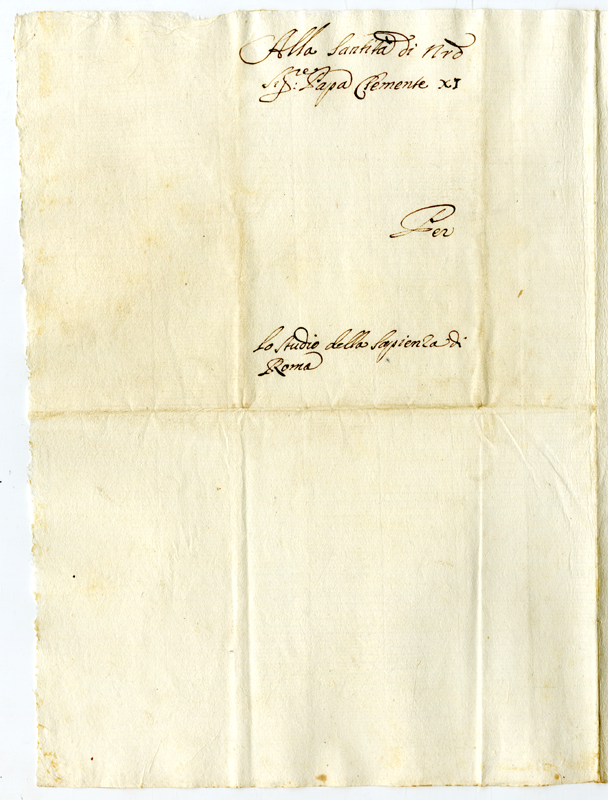 Alla Santità di Nrõ
Sig:re Papa Clemente XI
Per
lo studio della Sapienza di
Roma